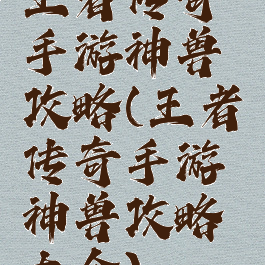 王者传奇
手游神兽
攻略(王者
传奇手游
神兽攻略
大全)